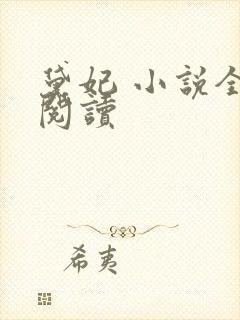 黛妃 小說全
閱讀
希夷